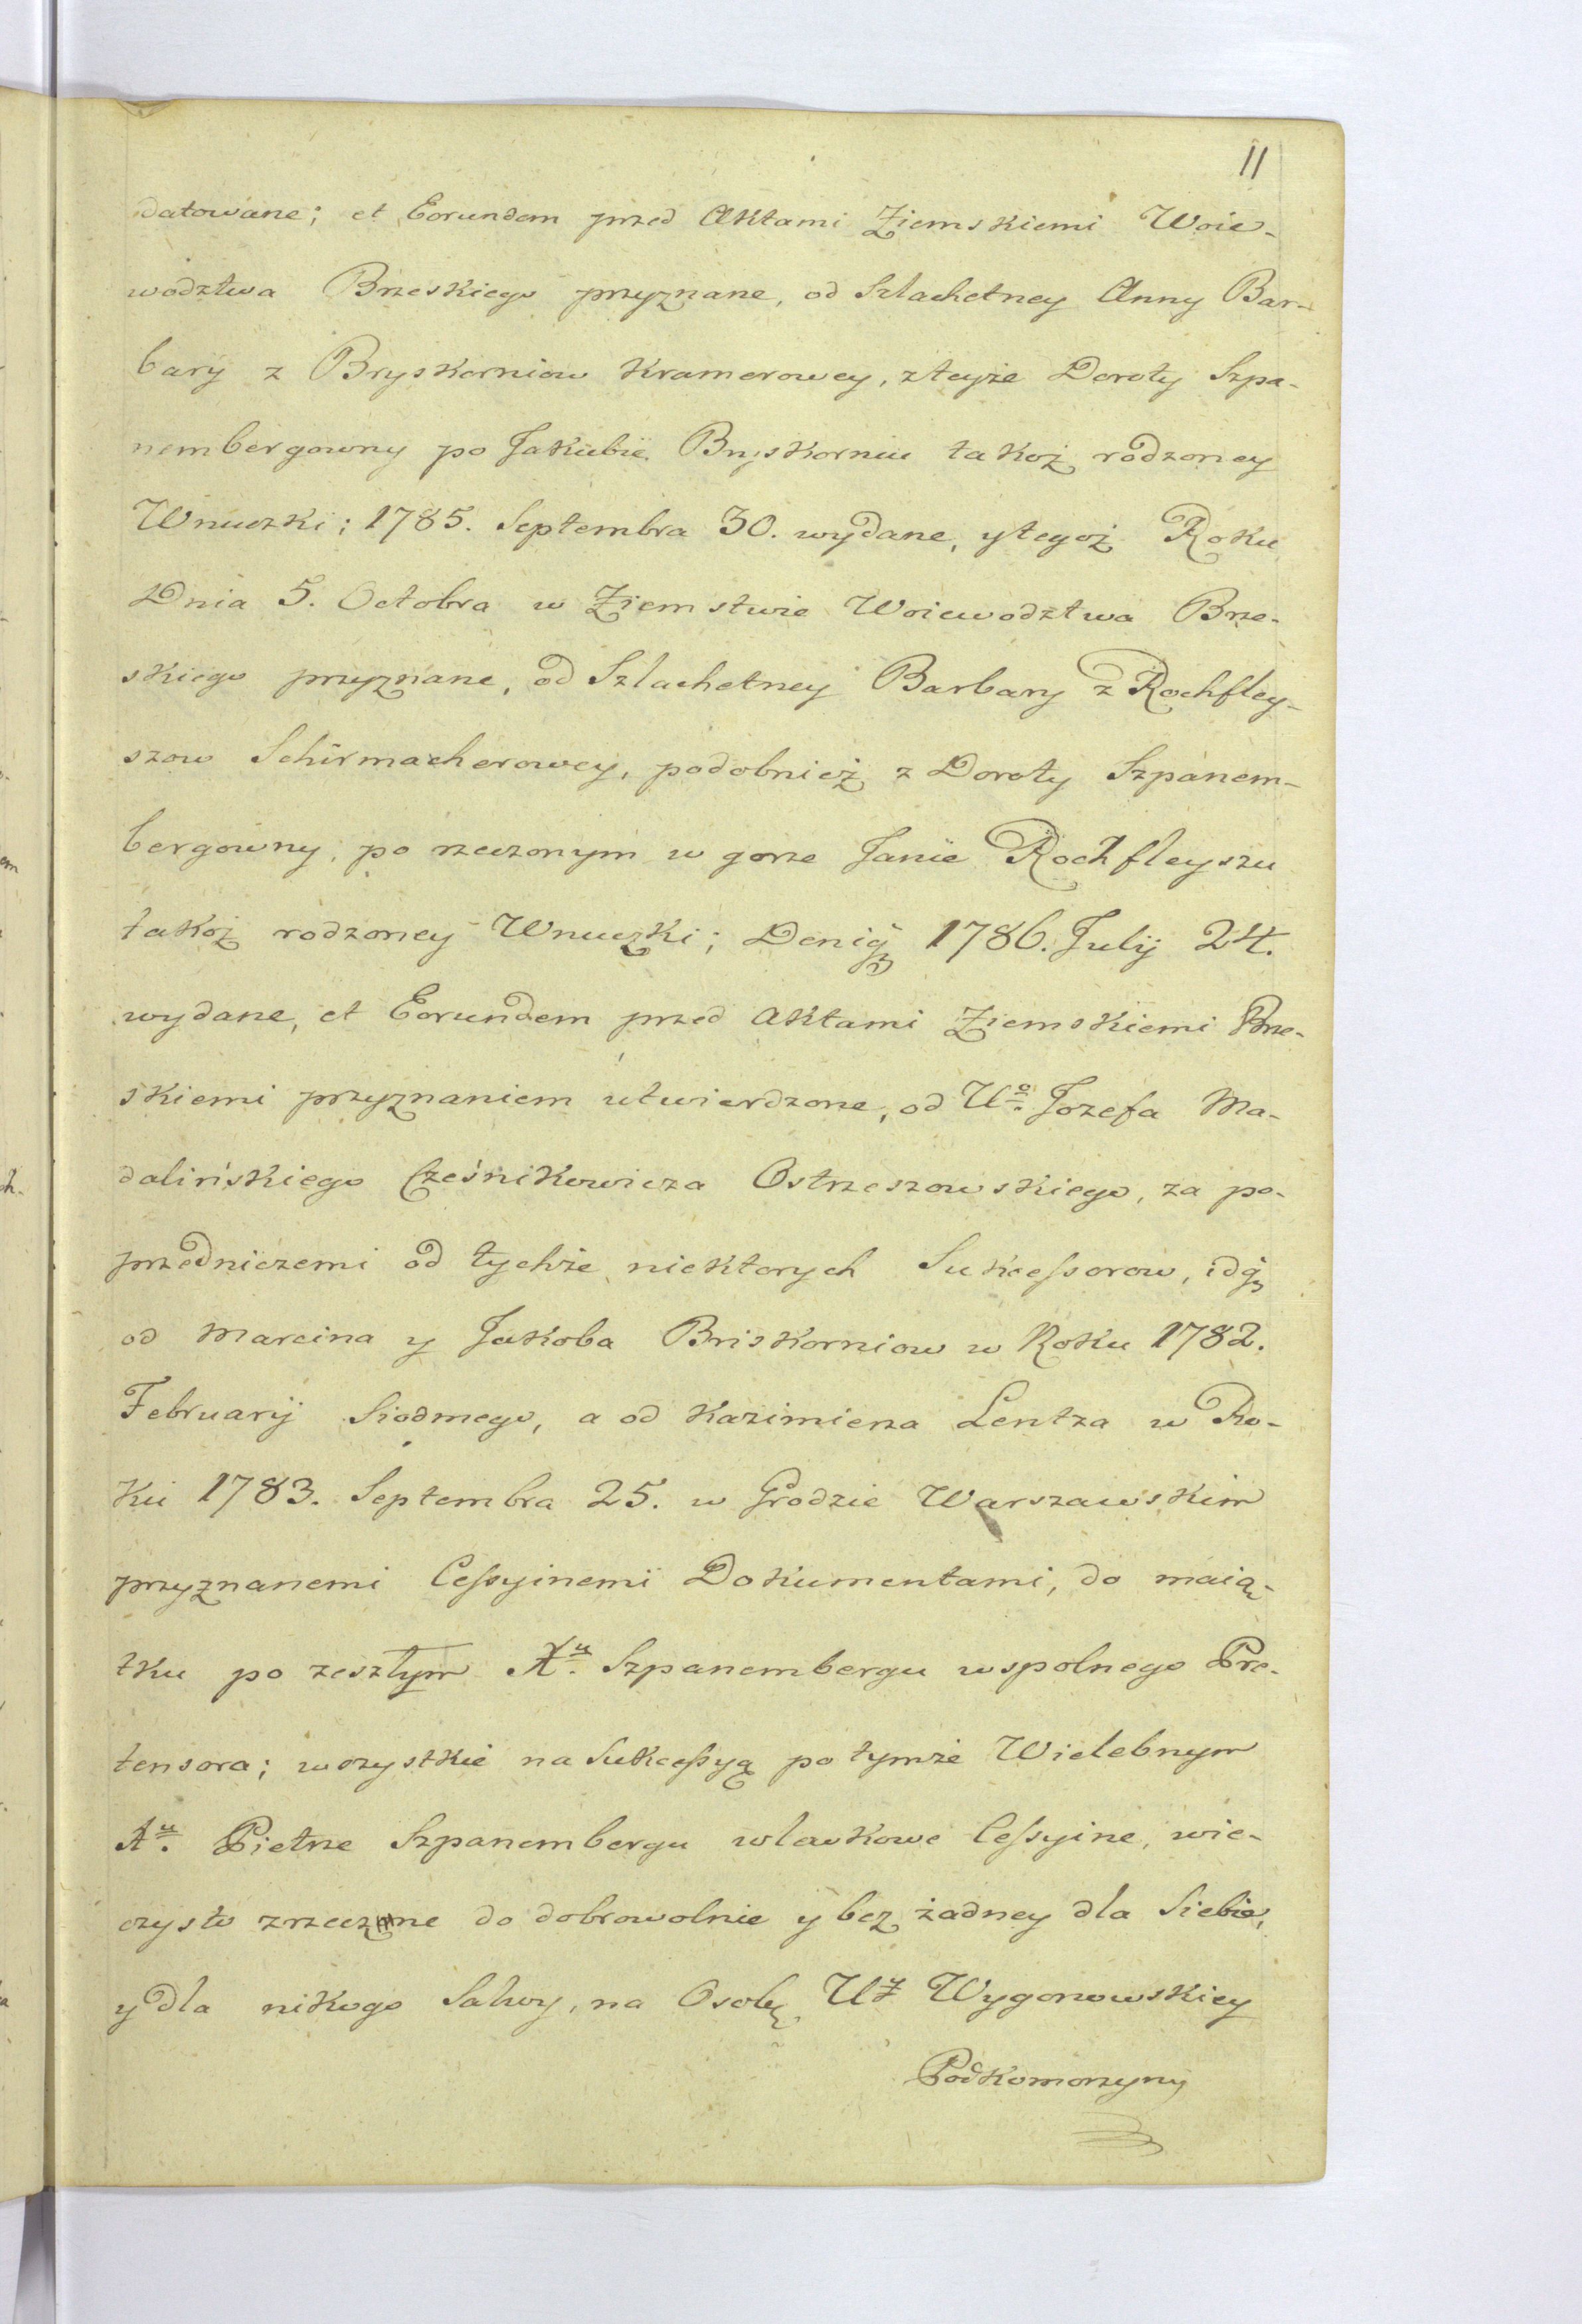 11
datowane; et Eorundem przed Aktami Ziemskiemi Woie-
wodztwa Brzeskiego przyznane, od Szlachetney Anny Bar-
bary z Bryskorniow Kramerowey, zteyże Doroty Szpa-
nembergowny po Jakubie Bryskorniu takoż rodzoney
Wnuczki; 1785. Septembra 30. wydane, ytegoż Roku
Dnia 5. Octobra w Ziemstwie Woiewodztwa Brze-
skiego przyznane, od Szlachetney Barbary z Rochfley-
szow Schirmacherowey, podobnież z Doroty Szpanem-
bergowny, po rzeczonym w gorze Janie Rochfleyszu
takoż rodzoney Wnuczki; Deniq 1786. Julij 24.
wydane, et Eorundem przed Aktami Ziemskiemi Brze-
skiemi przyznaniem utwierdzone, od Uo. Jozefa Ma-
dalińskiego Cześnikowicza Ostrzeszowskiego, za po-
przedniczemi od tychże niektorych Sukcessorow, idq
od Marcina y Jakoba Briskorniow w Roku 1782.
Februarij Siodmego, a od Kazimierza Lentza w Ro-
ku 1783. Septembra 25. w Grodzie Warszawskim
przyznanemi Cessyinemi Dokumentami, do maią-
tku po zeszłym Xu. Szpanembergu wspolnego Pre-
tensora; wszystkie na Sukcessyą po tymże Wielebnym
Xu. Pietrze Szpanembergu wlewkowe Cessyine, wie-
czysto zrzeczone do dobrowolnie y bez żadney dla Siebie,
y dla nikogo Salwy, na Osobę UZ Wygonowskiey
Podkomorzyny